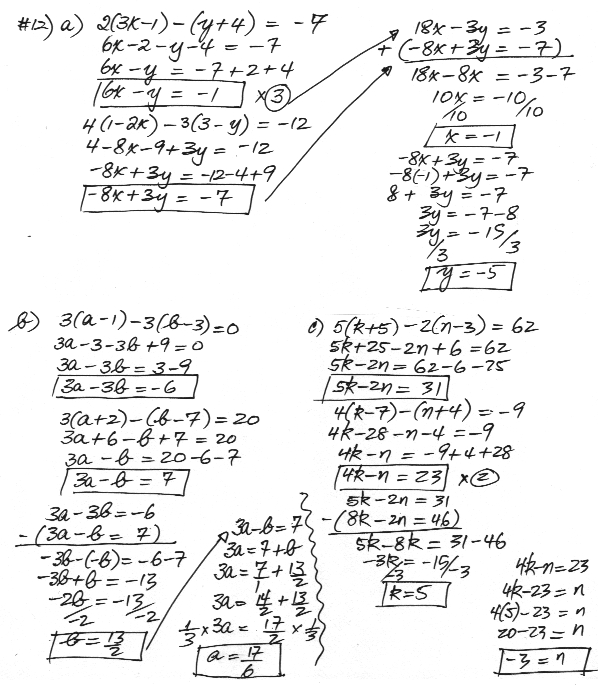 #12) a) 2(3x-1) - (y+4) = -7
6x-2-y-4 = -7
6x-y = -7+2+4
6x-y = -1 ×3
4(1-2x) - 3(3-y) = -12
4-8x-9+3y = -12
-8x+3y = -12-4+9
-8x+3y = -7
18x-3y = -3
+ (-8x+3y = -7)
18x-8x = -3-7
10x = -10
/10 /10
x = -1
-8x+3y = -7
-8(-1)+3y = -7
8 + 3y = -7
3y = -7-8
3y = -15
/3 /3
y = -5
b) 3(a-1)-3(b-3)=0
3a-3-3b+9=0
3a-3b = 3-9
3a-3b = -6
3(a+2)-(b-7)=20
3a+6-b+7=20
3a-b = 20-6-7
3a-b = 7
3a-3b = -6
-(3a-b = 7)
-3b-(-b) = -6-7
-3b+b = -13
-2b = -13
/-2 /-2
b = 13/2
3a-b = 7
3a = 7+b
3a = 7/1 + 13/2
3a = 14/2 + 13/2
1/3 × 3a = 17/2 × 1/3
a = 17/6
c) 5(k+5)-2(n-3) = 62
5k+25-2n+6 = 62
5k-2n = 62-6-25
5k-2n = 31
4(k-7)-(n+4) = -9
4k-28-n-4 = -9
4k-n = -9+4+28
4k-n = 23 ×2
5k-2n = 31
-(8k-2n = 46)
5k-8k = 31-46
-3k = -15
/-3 /-3
k = 5
4k-n = 23
4k-23 = n
4(5)-23 = n
20-23 = n
-3 = n